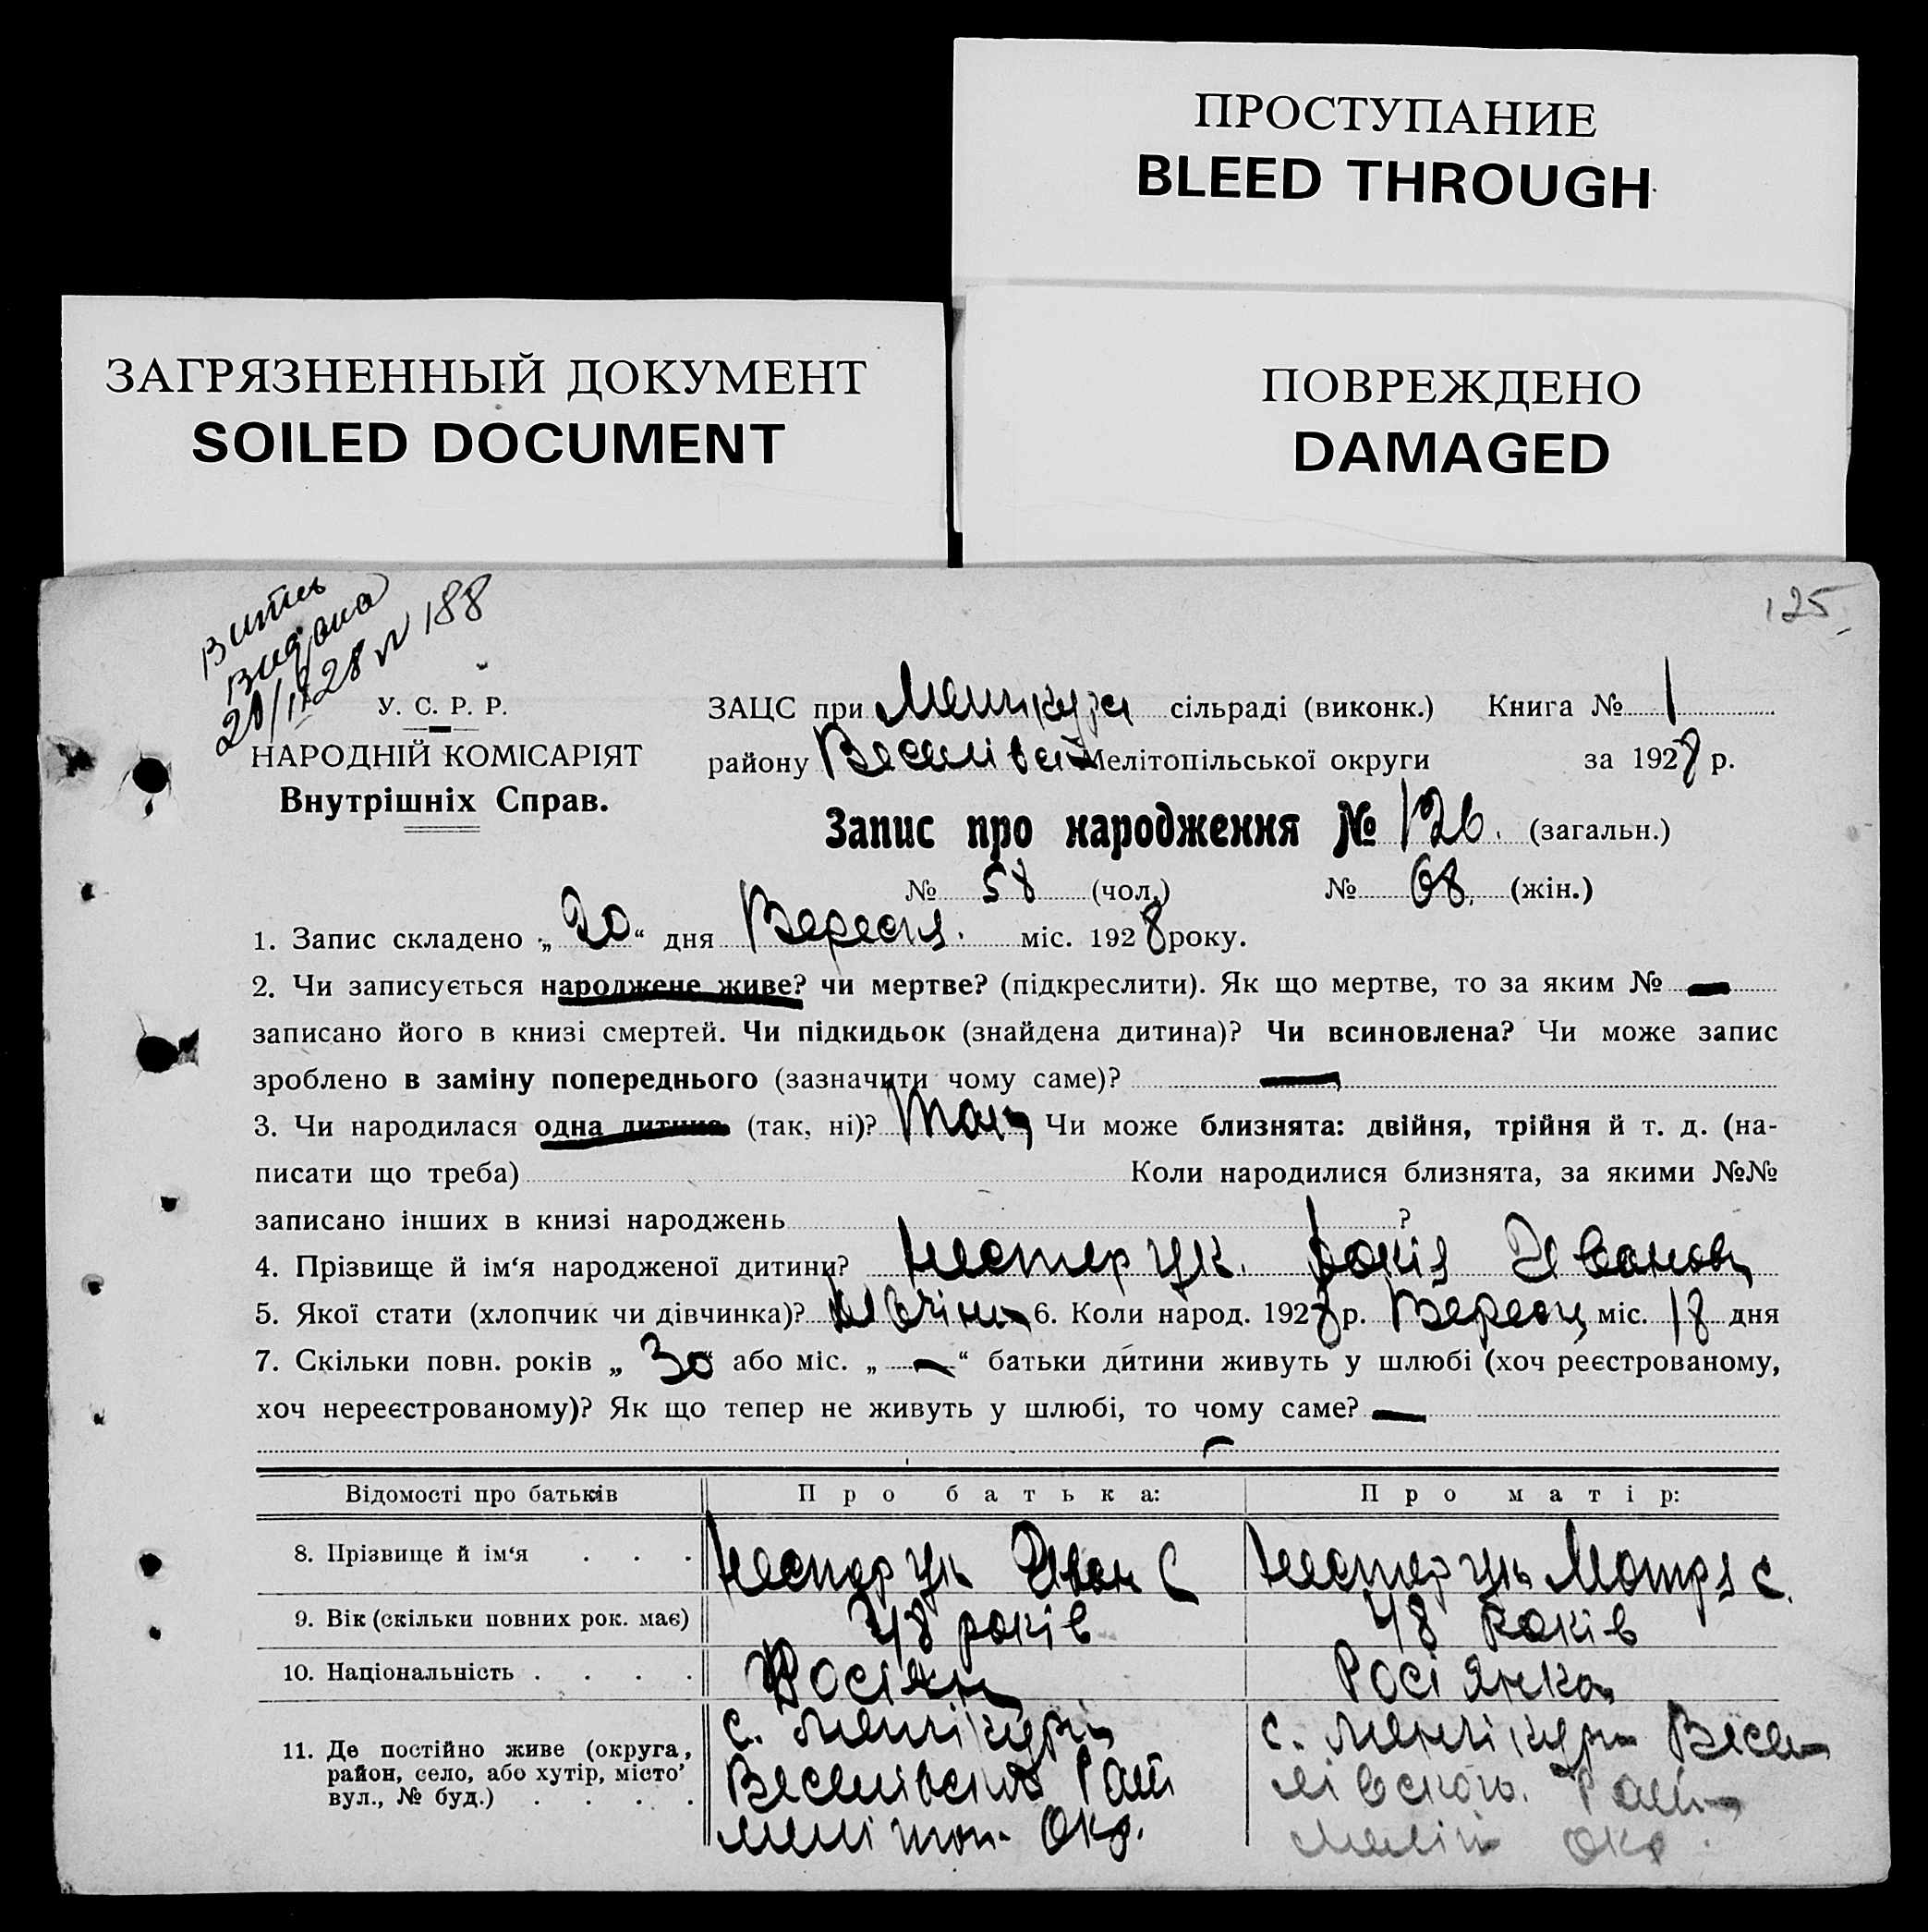 ПРОСТУПАНИЕ
BLEED THROUGH
ЗАГРЯЗНЕННЫЙ ДОКУМЕНТ
SOILED DOCUMENT
ПОВРЕЖДЕНО
DAMAGED
125
Витяг
видано
20/IX 28 N 188
У. С. Р. Р.
НАРОДНІЙ КОМІСАРІЯТ
Внутрішніх Справ.
ЗАЦС при Менчикур сільраді (виконк.) Книга № 1
району Веселівськ Мелітопільської округи за 1928 р.
Запис про народження № 126. (загальн.)
№ 58 (чол.) № 68. (жін.)
1. Запис складено „20“ дня Вересня. міс. 1928 року.
2. Чи записується народжене живе? чи мертве? (підкреслити). Як що мертве, то за яким № —
записано його в книзі смертей. Чи підкидьок (знайдена дитина)? Чи всиновлена? Чи може запис
зроблено в заміну попереднього (зазначити чому саме)? —
3. Чи народилася одна дитина (так, ні)? Так Чи може близнята: двійня, трійня й т. д. (на-
писати що треба) Коли народилися близнята, за якими №№
записано інших в книзі народжень ?
4. Прізвище й ім‘я народженої дитини? Нестерук. Іванов
5. Якої стати (хлопчик чи дівчинка)? 6. Коли народ. 1928 р. Вересн міс. 18 дня
7. Скільки повн. років „30“ або міс. „—“ батьки дитини живуть у шлюбі (хоч реєстрованому,
хоч нереєстрованому)? Як що тепер не живуть у шлюбі, то чому саме? —
Відомості про батьків Про батька: Про матір:
8. Прізвище й ім‘я . . . Нестерук Іван С Нестерук Мотря С.
9. Вік (скільки повних рок. має) 48 років 48 Років
10. Національність . . . . Росіян Росіянка
11. Де постійно живе (округа,
район, село, або хутір, місто’
вул., № буд.) . . . .
с. Менчікури
Веселівськ Рай
Мелітоп. Окр.
с. Менчікури Весе
лівського. Рай
Меліт Окр.